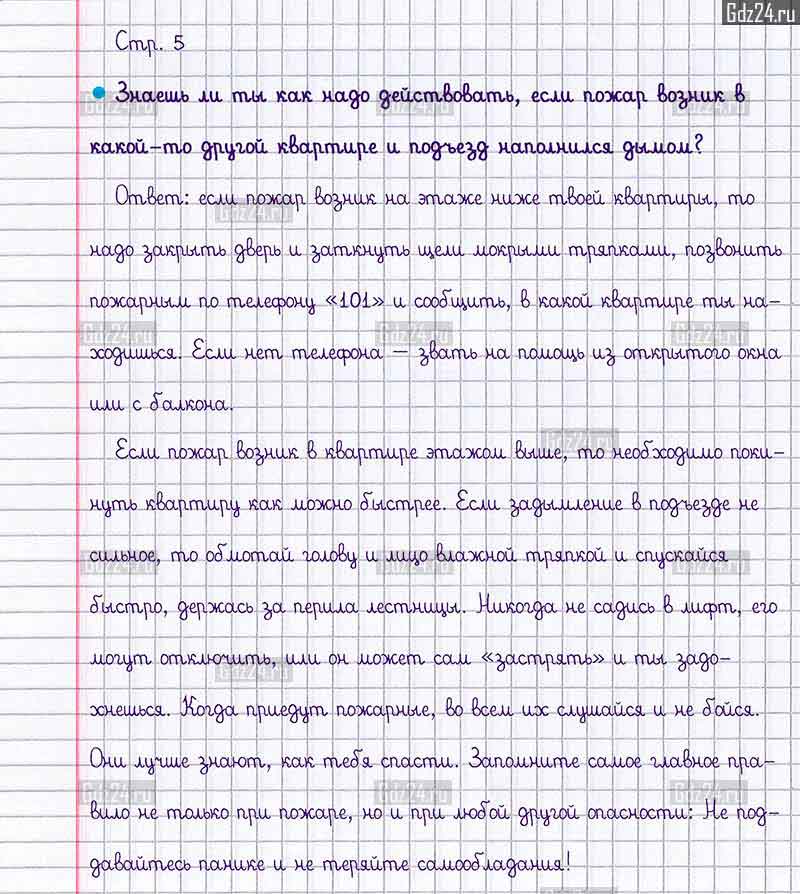 Gdz24.ru
Стр. 5
Знаешь ли ты как надо действовать, если пожар возник в
какой-то другой квартире и подъезд наполнился дымом?
Ответ: если пожар возник на этаже ниже твоей квартиры, то
надо закрыть дверь и заткнуть щели мокрыми тряпками, позвонить
пожарным по телефону «101» и сообщить, в какой квартире ты на-
ходишься. Если нет телефона — звать на помощь из открытого окна
или с балкона.
Если пожар возник в квартире этажом выше, то необходимо поки-
нуть квартиру как можно быстрее. Если задымление в подъезде не
сильное, то обмотай голову и лицо влажной тряпкой и спускайся
быстро, держась за перила лестницы. Никогда не садись в лифт, его
могут отключить, или он может сам «застрять» и ты задо-
хнешься. Когда приедут пожарные, во всем их слушайся и не бойся.
Они лучше знают, как тебя спасти. Запомните самое главное пра-
вило не только при пожаре, но и при любой другой опасности: Не под-
давайтесь панике и не теряйте самообладания!